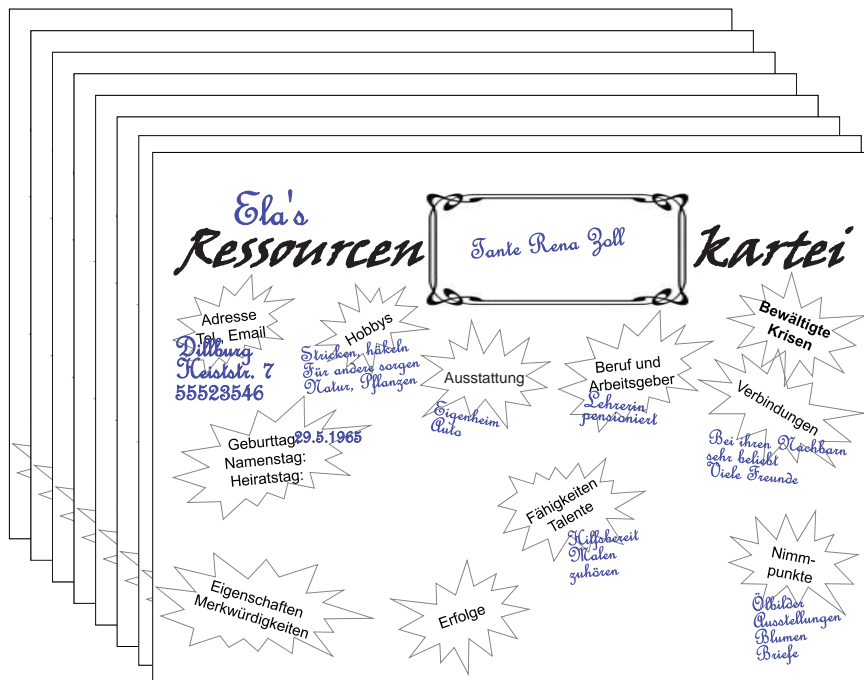 Ela's
Ressourcen
Tante Rena Zoll
kartei
Adresse
Tel. Email
Dillburg
Heiststr. 7
55523546
Hobbys
Stricken, häkeln
Für andere sorgen
Natur, Pflanzen
Ausstattung
Eigenheim
Auto
Beruf und
Arbeitsgeber
Lehrerin
pensioniert
Bewältigte
Krisen
Verbindungen
Bei ihren Nachbarn
sehr beliebt
Viele Freunde
Geburttag: 29.5.1965
Namenstag:
Heiratstag:
Fähigkeiten
Talente
Hilfsbereit
Malen
zuhören
Nimm-
punkte
Ölbilder
Ausstellungen
Blumen
Briefe
Eigenschaften
Merkwürdigkeiten
Erfolge